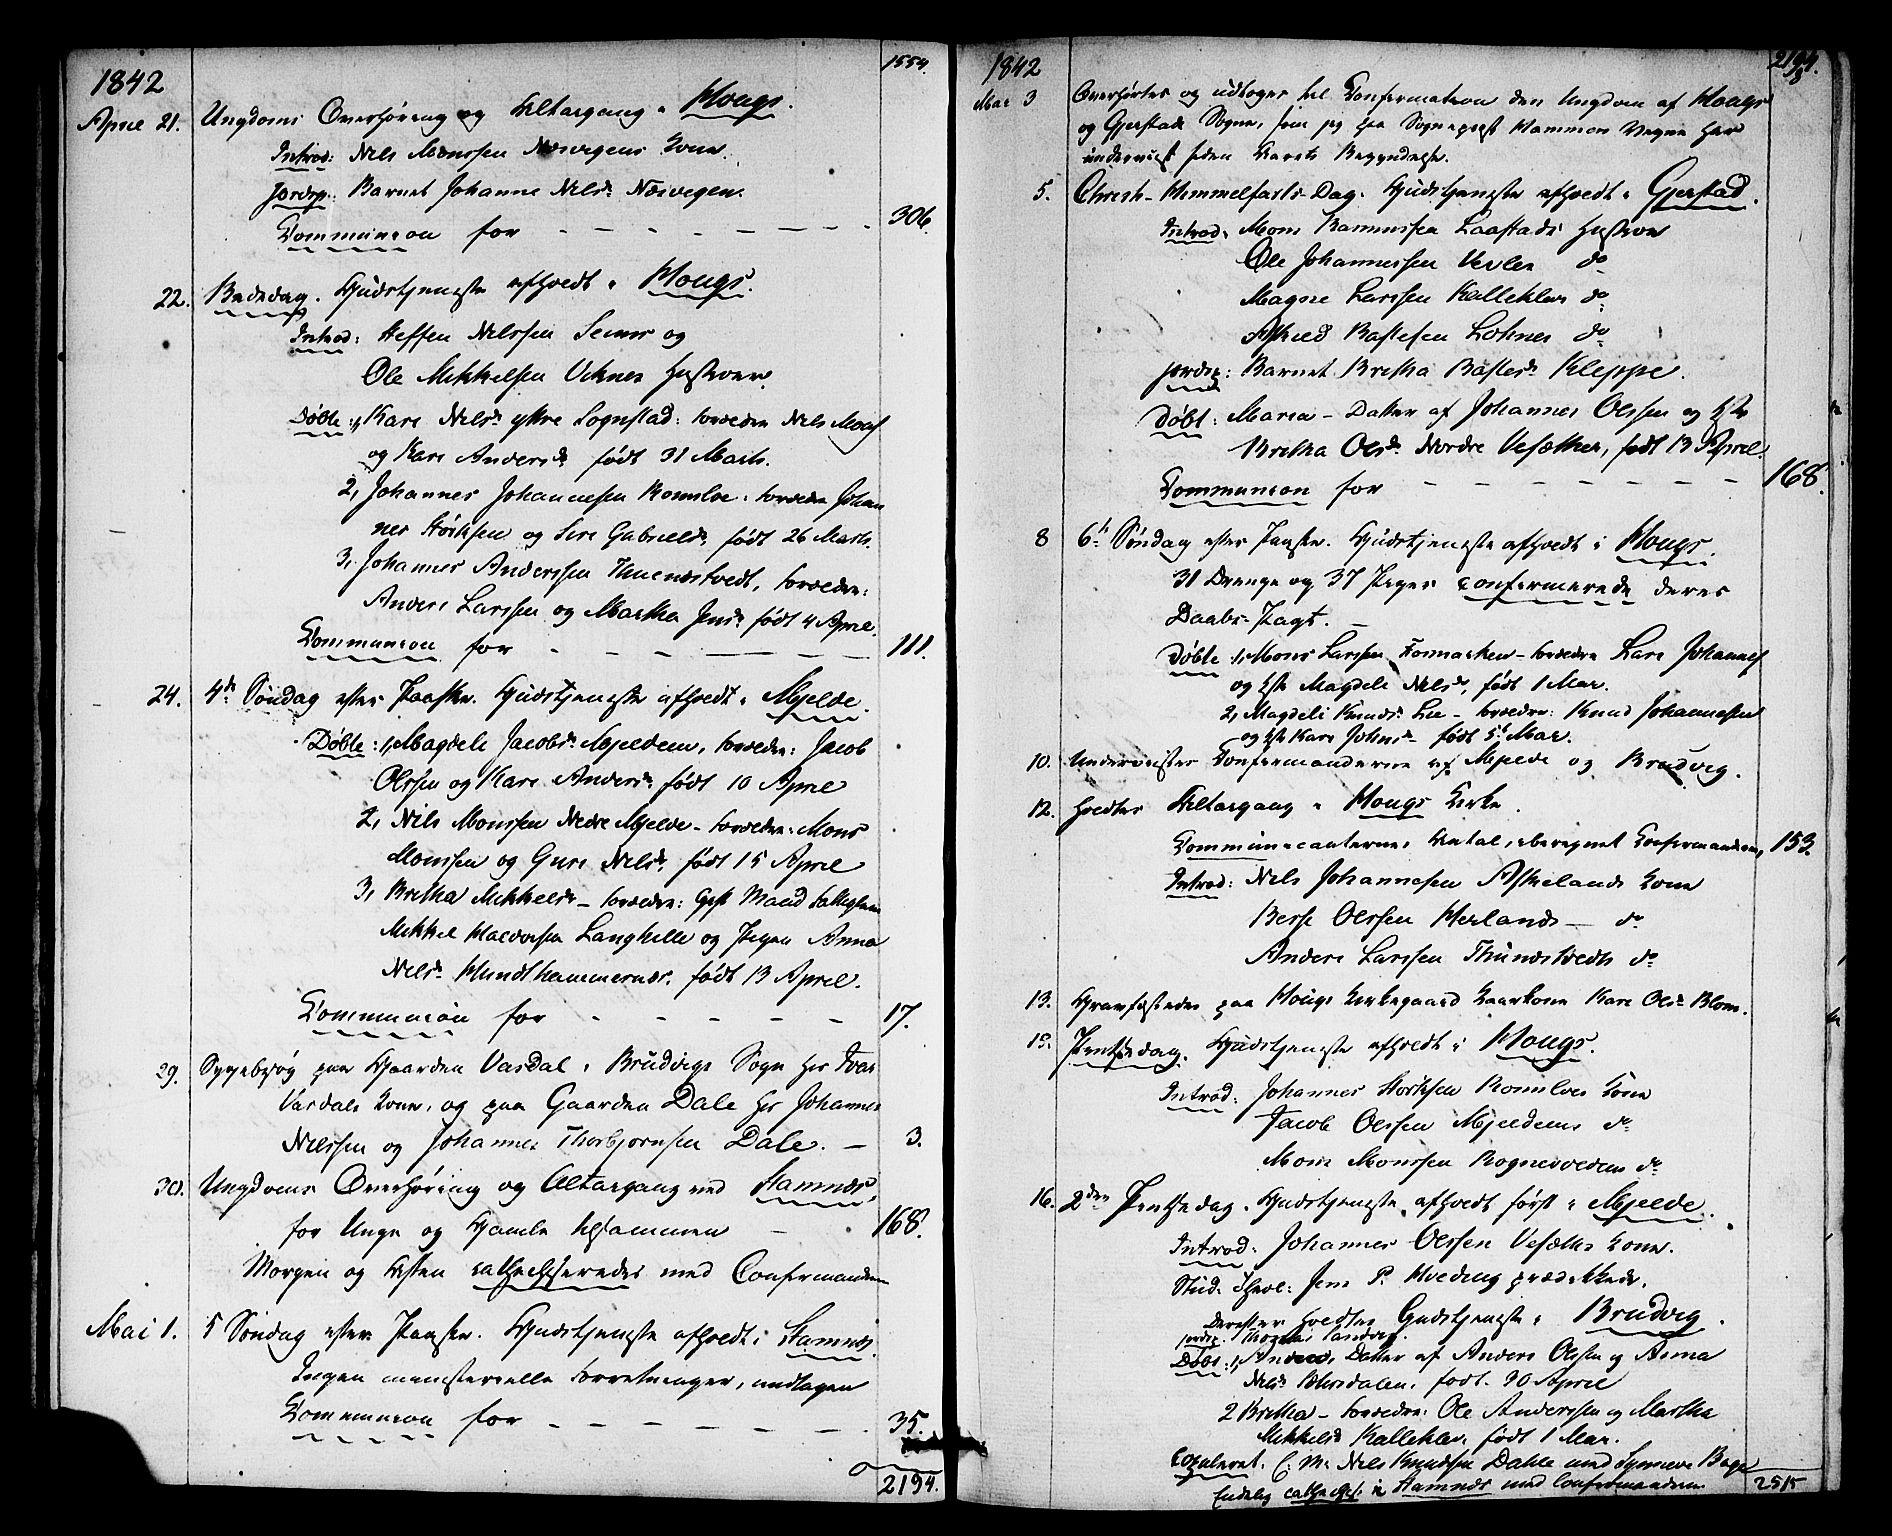 1842
1554.
April 21. Ungdoms Overhøring og Altergang i Hougs.
Introd: Nils Monssen Næsvegens Kone.
Jordsp: Barnet Johanne Nilsd. Næsvegen.
Communion for 306.
22. Bededag. Gudstjeneste afholdt i Hougs.
Introd: Steffen Nilssen Seims og
Ole Mikkelsen Viknes Hustruer.
Døbte: 1, Kari Nilsd. yttre Sognstad: Forældre Nils
og Kari Andersd. født 31 Marts.
2, Johannes Johannesen Romsloe: Forældre Johan
nes Størksen og Siri Gabrielsd. født 26 Marts.
3, Johannes Anderssen Thunestvedt, Forældre:
Anders Larssen og Martha Jensd. født 4 April.
Communion for 111.
24. 4de Søndag efter Paaske. Gudstjeneste afholdt i Mjelde.
Døbte: 1, Magdele Jacobsd. Mjeldeim, Forældre: Jacob
Olssen og Kari Andersd. født 10 April
2, Nils Monssen Nedre Mjelde – Forældre: Mons
Monssen og Guri Nilsd. født 15 April
3, Britha Mikkelsd. – Forældre: Gift Mand
Mikkel Haldorsen Langhelle og Pigen Anna
Nilsd. Hundhammernæs. født 13 April.
Communion for 17.
29. Sygebesøg paa Gaarden Vasdal i Brudvigs Sogn hos Ivar
Vasdals Kone, og paa Gaarden Dale hos Johannes
Nilssen og Johannes Thorbjørnsen Dale. – 3.
30. Ungdoms Overhøring og Altergang ved Stamnæs,
for Unge og Gamle tilsammen – 168.
Morgen og Aften cathechiseredes med Confirmanderne
Mai 1. 5 Søndag efter Paaske. Gudstjeneste afholdt i Stamnæs.
Ingen ministerielle Forretninger, undtagen
Communion for 35.
2194.
1842
2194.
Mai 3 Overhørtes og udtoges til Confirmation den Ungdom af Hougs
og Gjerstads Sogne, som jeg paa Sognepræst Hammers Vegne har
underviist siden Aarets Begyndelse.
5. Christi Himmelfarts-Dag. Gudstjeneste afholdt i Gjerstad.
Introd: Mons Rasmussen Laastads Hustrue
Ole Johannessen Vevles do
Magne Larssen Kalleklevs do
Baste­sen Lohnes do
Jordsp: Barnet Britha Bastesd. Kleppe.
Døbt: Maria – Datter af Johannes Olssen og Hstr
Britha Olsd. Nordre Vesæther, født 13 April.
Communion for 168.
8 6te Søndag efter Paaske. Gudstjeneste afholdt i Hougs.
31 Drenge og 37 Piger confirmerede deres
Daabs-Pagt. –
Døbte 1, Mons Larssen – Forældre Lars Johannes
og Hstr Magdeli Nilsd. født 1 Mai.
2, Magdeli Knudsd. Lie – Forældre: Knud Johannesen
og Hstr Kari Johnsd. født 5 Mai.
10. Underviistes Confirmanderne af Mjelde og Brudvig.
12. Holdtes Altergang i Hougs Kirke.
Communicanternes Antal, uberegnet Confirmanderne, 153.
Introd: Nils Johannesen Askelands Kone
Berse Olssen Herlands – do
Anders Larssen Thunestvedts do
13. Gravfæstedes paa Hougs Kirkegaard Kaarkone Kari Olsd. Blom.
15. Pintsedag. Gudstjeneste afholdt i Hougs.
Introd: Johannes Størksen Romsloes Kone
Jacob Olssen Mjeldeims do
Mons Monssen do
16. 2den Pintsedag. Gudstjeneste afholdt først i Mjelde.
Introd: Johannes Olssen Vesæths Kone.
Stud. Theol: Jens P. Hveding prædikede.
Derefter holdtes Gudstjeneste i Brudvig.
Jordsp.
Døbt: 1, Datter af Anders Olssen og Anna
Nilsd. født 30 April
2 Britha – Forældre: Ole Anderssen og Martha
Mikkelsd. Kalleklev, født 1 Mai.
Copuleret. Nils Knudsen Dahle med Synneve
Endelig i Stamnæs med Confirmanderne.
2515